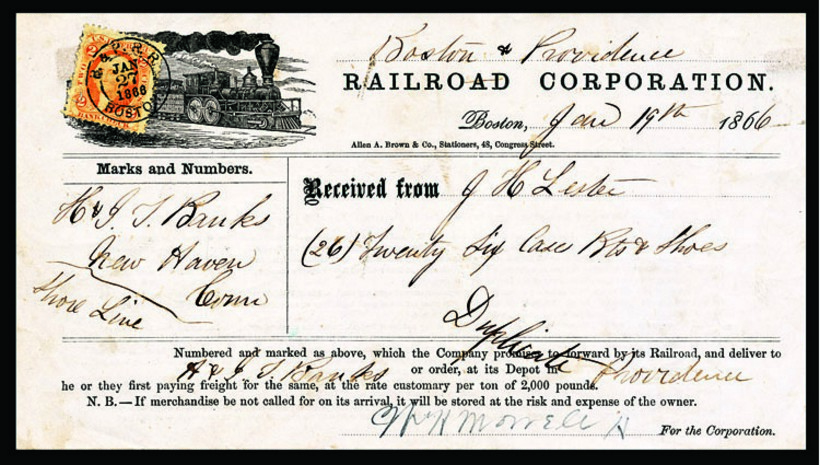 Boston & Providence
RAILROAD CORPORATION.
B. & P. R. R.
JAN
27
1866
BOSTON
Boston, Jan 19th 1866
Allen A. Brown & Co., Stationers, 48, Congress Street.
Marks and Numbers.
H & J. T. Banks
New Haven
Conn
Shore Line
Received from J H Lester
(26) Twenty Six Case Bts & Shoes
Duplicate
Numbered and marked as above, which the Company promises to forward by its Railroad, and deliver to
H & J. T. Banks or order, at its Depot in Providence
he or they first paying freight for the same, at the rate customary per ton of 2,000 pounds.
N. B.—If merchandise be not called for on its arrival, it will be stored at the risk and expense of the owner.
For the Corporation.